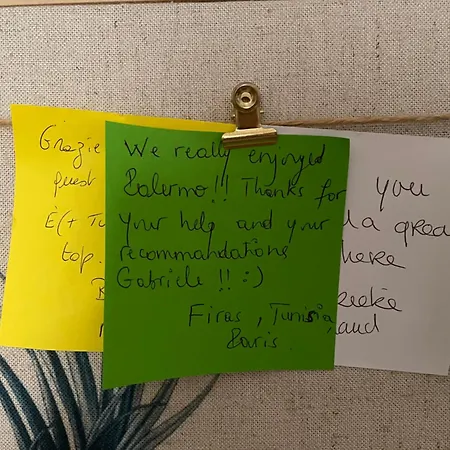 Grazie
quest
È (+ Tu
top.
We really enjoyed
Palermo!! Thanks for
your help and your
recommandations
Gabriele !! :)
Firas, Tunisia,
Paris
you
a grea
here
and